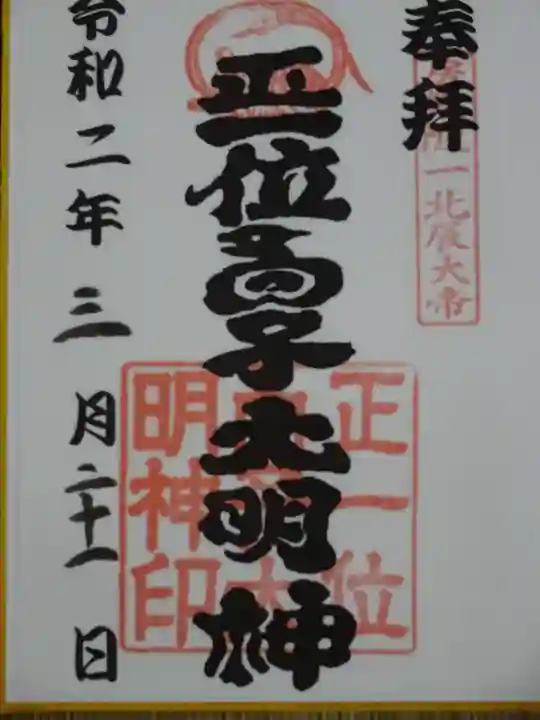 奉拝
一北辰大帝
正一位子大明神
正一位
大
明神印
令和二年三月二十一日